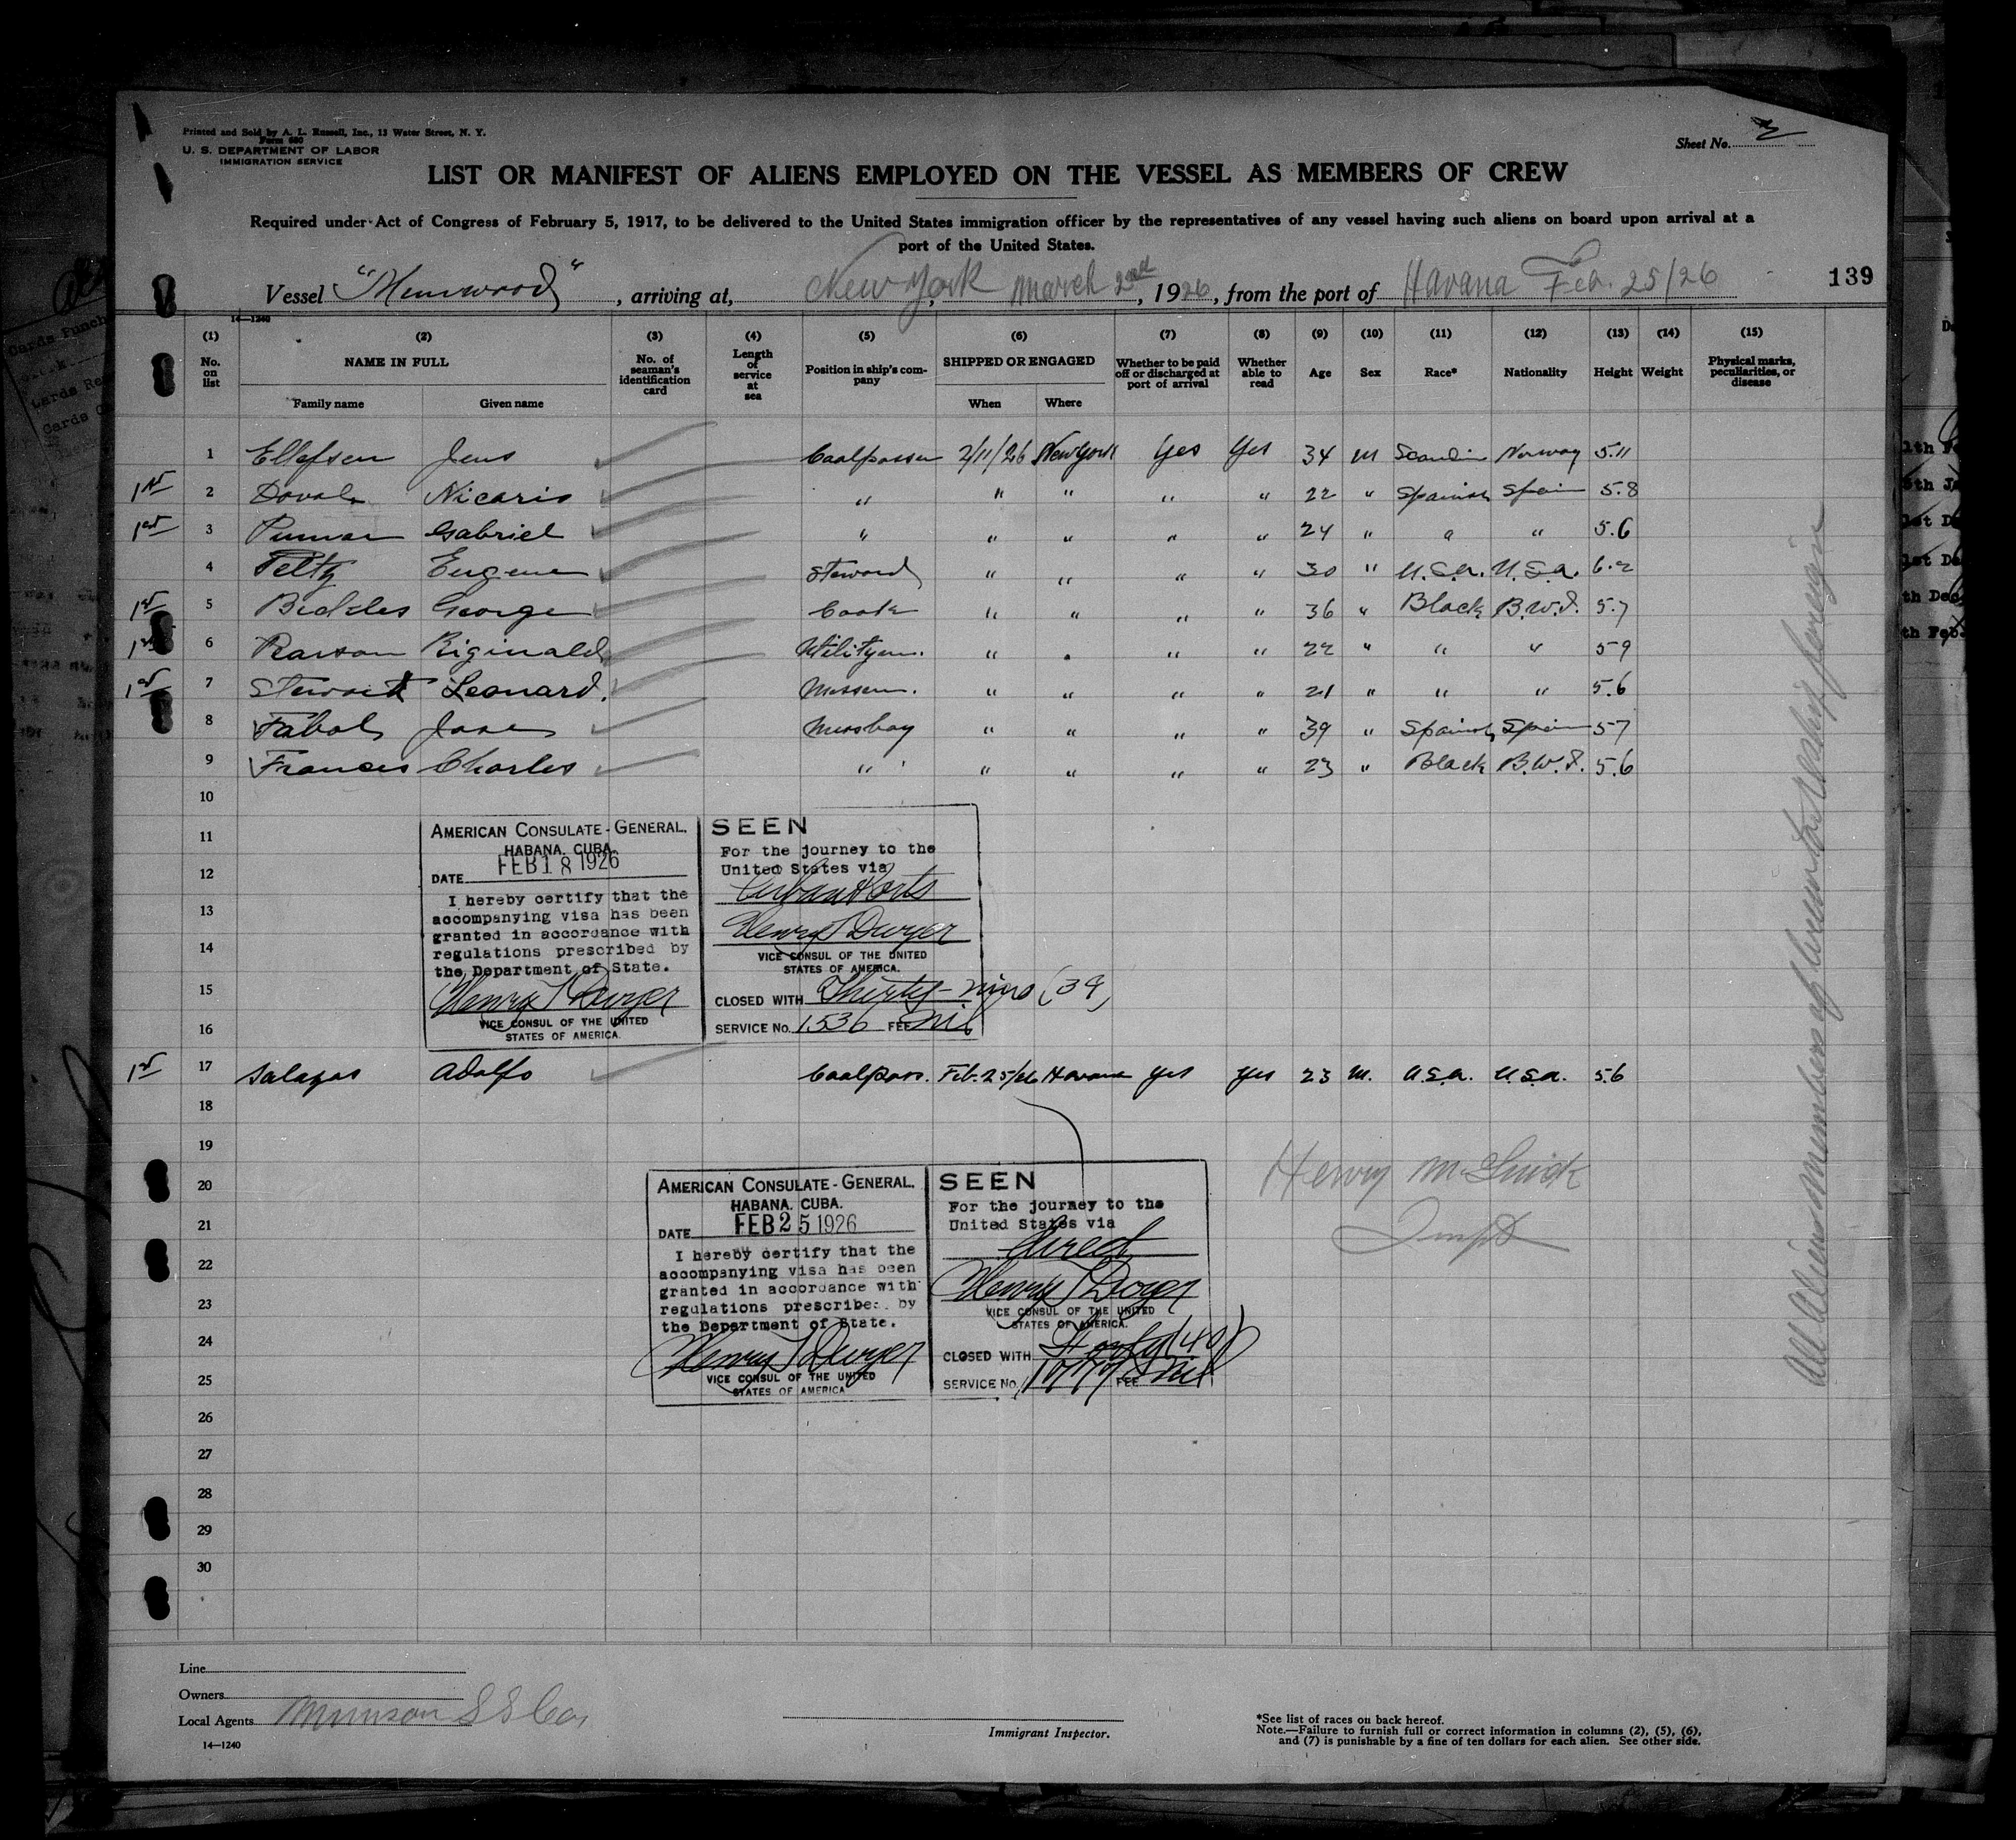 Printed and Sold by A. L. Russell, Inc., 13 Water Street, N. Y.
Form 680
U. S. DEPARTMENT OF LABOR
IMMIGRATION SERVICE
Sheet No.
LIST OR MANIFEST OF ALIENS EMPLOYED ON THE VESSEL AS MEMBERS OF CREW
Required under Act of Congress of February 5, 1917, to be delivered to the United States immigration officer by the representatives of any vessel having such aliens on board upon arrival at a
port of the United States.
Vessel "Munwood", arriving at, New York, March 2nd, 1926, from the port of Havana Feb. 25/26
139
14—1240
(1) (2) (3) (4) (5) (6) (7) (8) (9) (10) (11) (12) (13) (14) (15)
No. on list NAME IN FULL No. of seaman's identification card Length of service at sea Position in ship's company SHIPPED OR ENGAGED Whether to be paid off or discharged at port of arrival Whether able to read Age Sex Race* Nationality Height Weight Physical marks, peculiarities, or disease
Family name Given name When Where
1 Ellefsen Jens Coalpasser 2/11/26 New York Yes Yes 34 M Scandin Norway 5.11
1st 2 Doval Nicaris " " " " " 22 " Spanish Spain 5.8
1st 3 Gabriel " " " " " 24 " " " 5.6
4 Pelty Eugene Steward " " " " 30 " U.S.A. U.S.A. 6.2
1st 5 Biddles George Cook " " " " 36 " Black B.W.I. 5.7
1st 6 Rawson Riginald Utilitym. " " " " 22 " " " 59
1st 7 Stewart Leonard. Messm. " " " " 21 " " " 5.6
8 Jose Messboy " " " " 39 " Spanish Spain 57
9 Frances Charles " " " " " 23 " Black B.W.I. 5.6
10
11
12
13
14
15
16
AMERICAN CONSULATE-GENERAL.
HABANA. CUBA.
DATE FEB 18 1926
I hereby certify that the
accompanying visa has been
granted in accordance with
regulations prescribed by
the Department of State.
Henry T Dwyer
VICE CONSUL OF THE UNITED
STATES OF AMERICA.
SEEN
For the journey to the
United States via
Cuban Ports
Henry T Dwyer
VICE CONSUL OF THE UNITED
STATES OF AMERICA.
CLOSED WITH Thirty-nine (39)
SERVICE No. 1536 FEE Nil
1st 17 Salazar Adolfo Coalpass. Feb. 25/26 Havana Yes Yes 23 M. U.S.A. U.S.A. 5.6
18
19
20
21
22
23
24
25
26
27
28
29
30
AMERICAN CONSULATE-GENERAL.
HABANA. CUBA.
DATE FEB 25 1926
I hereby certify that the
accompanying visa has been
granted in accordance with
regulations prescribed by
the Department of State.
Henry T Dwyer
VICE CONSUL OF THE UNITED
STATES OF AMERICA
SEEN
For the journey to the
United States via
direct
Henry T Dwyer
VICE CONSUL OF THE UNITED
STATES OF AMERICA.
CLOSED WITH Forty (40)
SERVICE No. FEE Nil
Henry
Insp
All Aliens members of crew
Line
Owners
Local Agents Munson S S Co,
14—1240
Immigrant Inspector.
*See list of races on back hereof.
Note.—Failure to furnish full or correct information in columns (2), (5), (6),
and (7) is punishable by a fine of ten dollars for each alien. See other side.